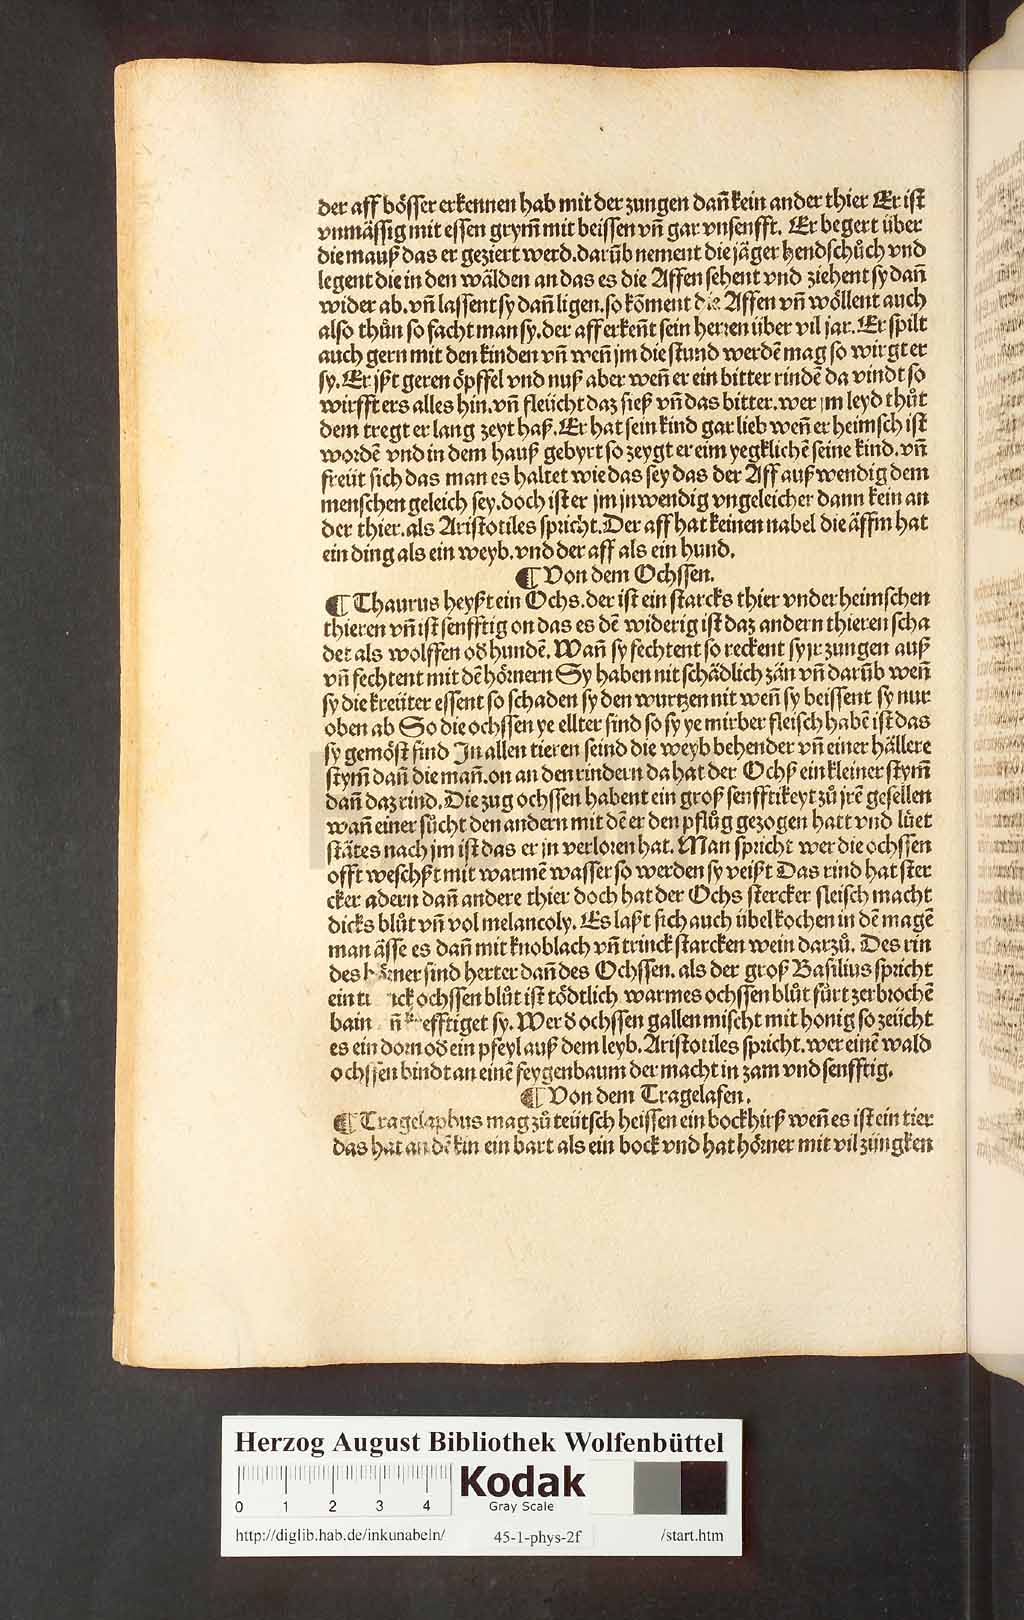 der aff bösser erkennen hab mit der zungen dañ kein ander thier Er ist
vnmässig mit essen grym̃ mit beissen vñ gar vnsenfft. Er begert über
die mauß das er geziert werd. darüb nement die jäger hendschůch vnd
legent die in den wälden an das es die Affen sehent vnd ziehent sy dañ
wider ab. vñ lassent sy dañ ligen. so kom̃ent die Affen vñ wöllent auch
also thůn so facht man sy. der aff erkeñt sein herren über vil jar. Er spilt
auch gern mit den kinden vñ weñ jm die stund werdē mag so wirgt er
sy. Er jßt geren öpffel vnd nuß aber weñ er ein bitter rindē da vindt so
wirfft ers alles hin. vñ fleücht daz sieß vñ das bitter. wer im leyd thůt
dem tregt er lang zeyt haß. Er hat sein kind gar lieb weñ er heimsch ist
wordē vnd in dem hauß gebyrt so zeygt er eim yegklichē seine kind. vñ
freüt sich das man es haltet wie das sey das der Aff außwendig dem
menschen geleich sey. doch ist er jm jnwendig vngeleicher dann kein an
der thier. als Aristotiles spricht. Der aff hat keinen nabel die äffin hat
ein ding als ein weyb. vnd der aff als ein hund.
¶ Von dem Ochssen.
¶ Thaurus heyßt ein Ochs. der ist ein starcks thier vnder heimschen
thieren vñ ist senfftig on das es dē widerig ist daz andern thieren scha
det als wolffen od hundē. Wañ sy fechtent so reckent sy jr zungen auß
vñ fechtent mit dē hörnern Sy haben nit schädlich zän vñ darüb weñ
sy die kreüter essent so schaden sy den wurtzen nit weñ sy beissent sy nur
oben ab So die ochssen ye ellter sind so sy ye mirber fleisch habē ist das
sy gemöst sind In allen tieren seind die weyb behender vñ einer hällere
stym̃ dañ die mañ. on an den rindern da hat der Ochß ein kleiner stym̃
dañ daz rind. Die zug ochssen habent ein groß senfftikeyt zů jrē gesellen
wañ einer sůcht den andern mit dē er den pflůg gezogen hatt vnd lüet
stätes nach jm ist das er jn verloren hat. Man spricht wer die ochssen
offt weschßt mit warmē wasser so werden sy veißt Das rind hat ster
cker adern dañ andere thier doch hat der Ochs stercker fleisch macht
dicks blůt vñ vol melancoly. Es laßt sich auch übel kochen in dē magē
man ässe es dañ mit knoblach vñ trinck starcken wein darzů. Des rin
des hörner sind herter dañ des Ochssen. als der groß Basilius spricht
ein ochssen blůt ist tödtlich warmes ochssen blůt fürt zerbrochē
bain efftiget sy. Wer d ochssen gallen mischt mit honig so zeücht
es ein dorn od ein pfeyl auß dem leyb. Aristotiles spricht. wer einē wald
ochssen bindt an einē feygenbaum der macht in zam vnd senfftig.
¶ Von dem Tragelafen.
¶ Tragelaphus mag zů teütsch heissen ein bockhirß weñ es ist ein tier
das hat an dē kin ein bart als ein bock vnd hat hörner mit vil züngken
Herzog August Bibliothek Wolfenbüttel
0 1 2 3 4
Kodak
Gray Scale
http://diglib.hab.de/inkunabeln/ 45-1-phys-2f /start.htm